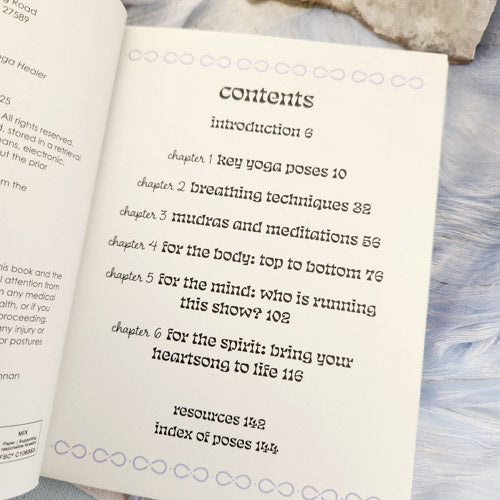 ng Road
27589
ga Healer
25
All rights reserved.
d, stored in a retrieval
ans, electronic,
ut the prior
m the
his book and the
l attention from
n any medical
ealth, or if you
proceeding.
any injury or
or postures
nnan
MIX
Paper | Supporting
responsible forestry
FSC® C106563
contents
introduction 6
chapter 1 key yoga poses 10
chapter 2 breathing techniques 32
chapter 3 mudras and meditations 56
chapter 4 for the body: top to bottom 76
chapter 5 for the mind: who is running
this show? 102
chapter 6 for the spirit: bring your
heartsong to life 116
resources 142
index of poses 144